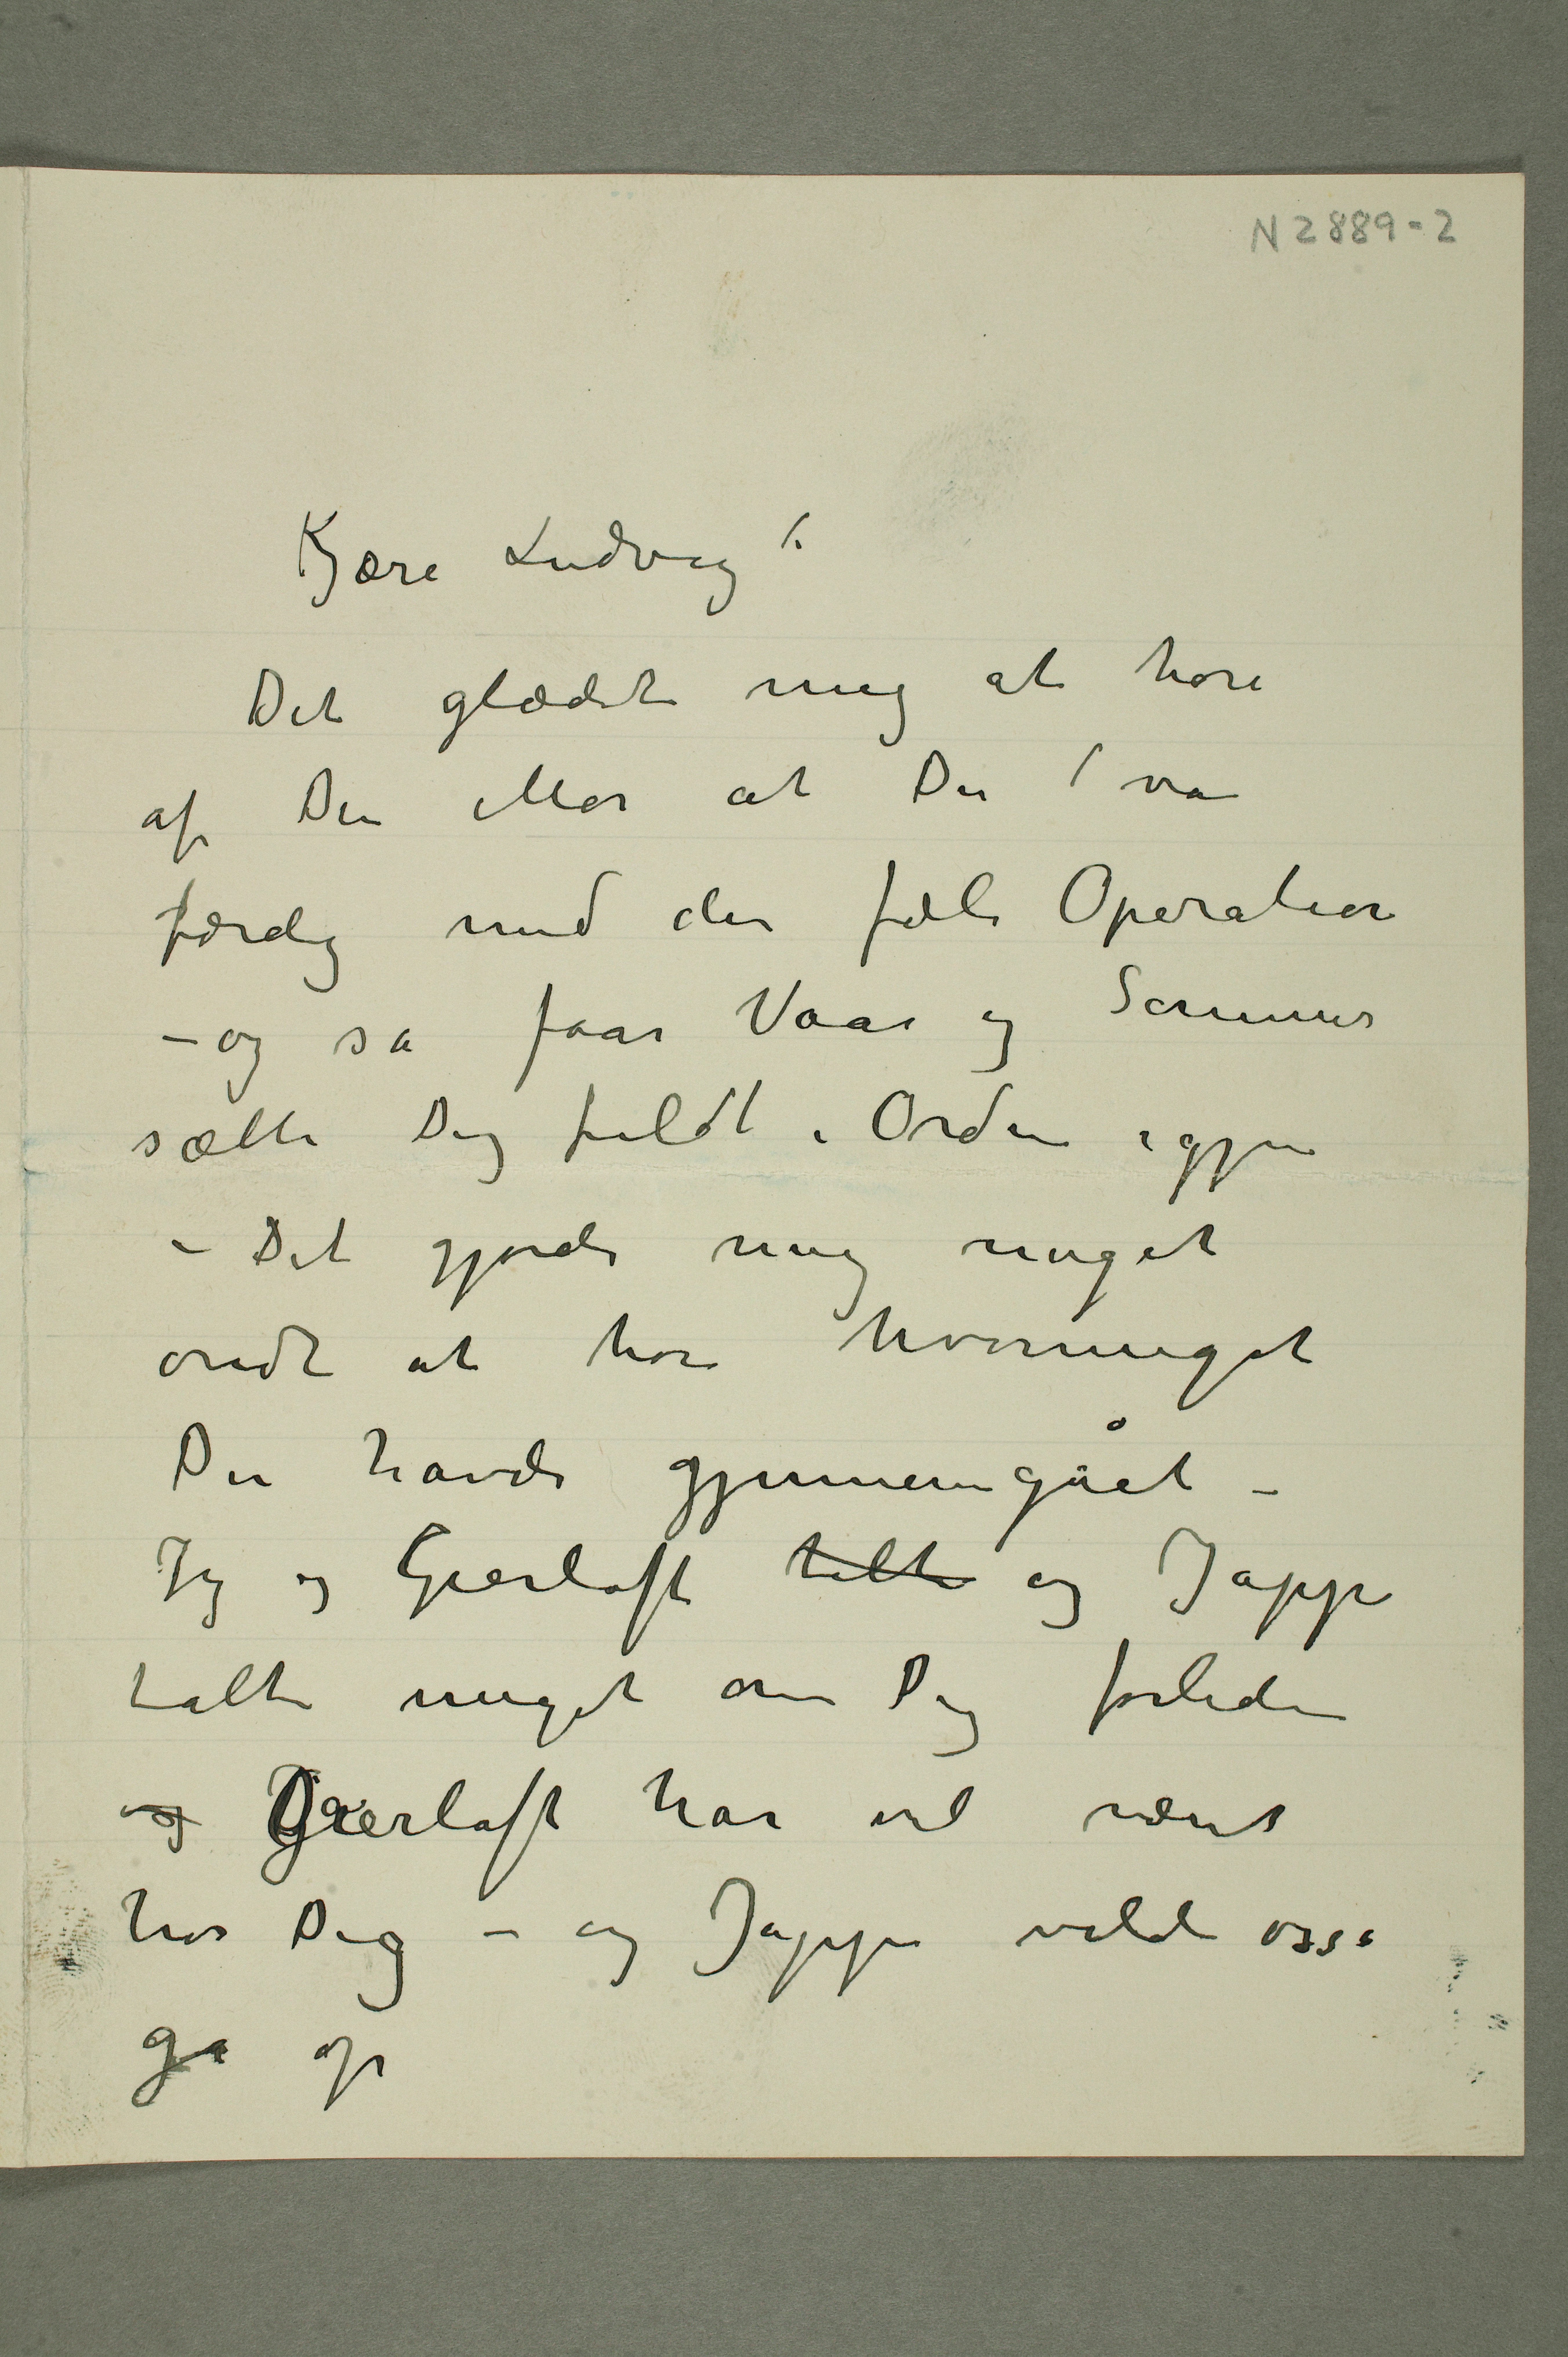 N 2889-2
Kjære Ludvig!
Det glædet mig at høre
af Din Mor at Du var
færdig med den fæle Operation
– og så faar Vaar og Sommer
sætte Dig fuldt i Orden igjen
– Det gjorde mig meget
ondt at høre hvormeget
Du havde gjennemgået –
Jeg og Gierløft talte og Jappe
talte meget om Dig forleden
og Gierløft har vel været
hos Dig – og Jappe vilde osså
gå op